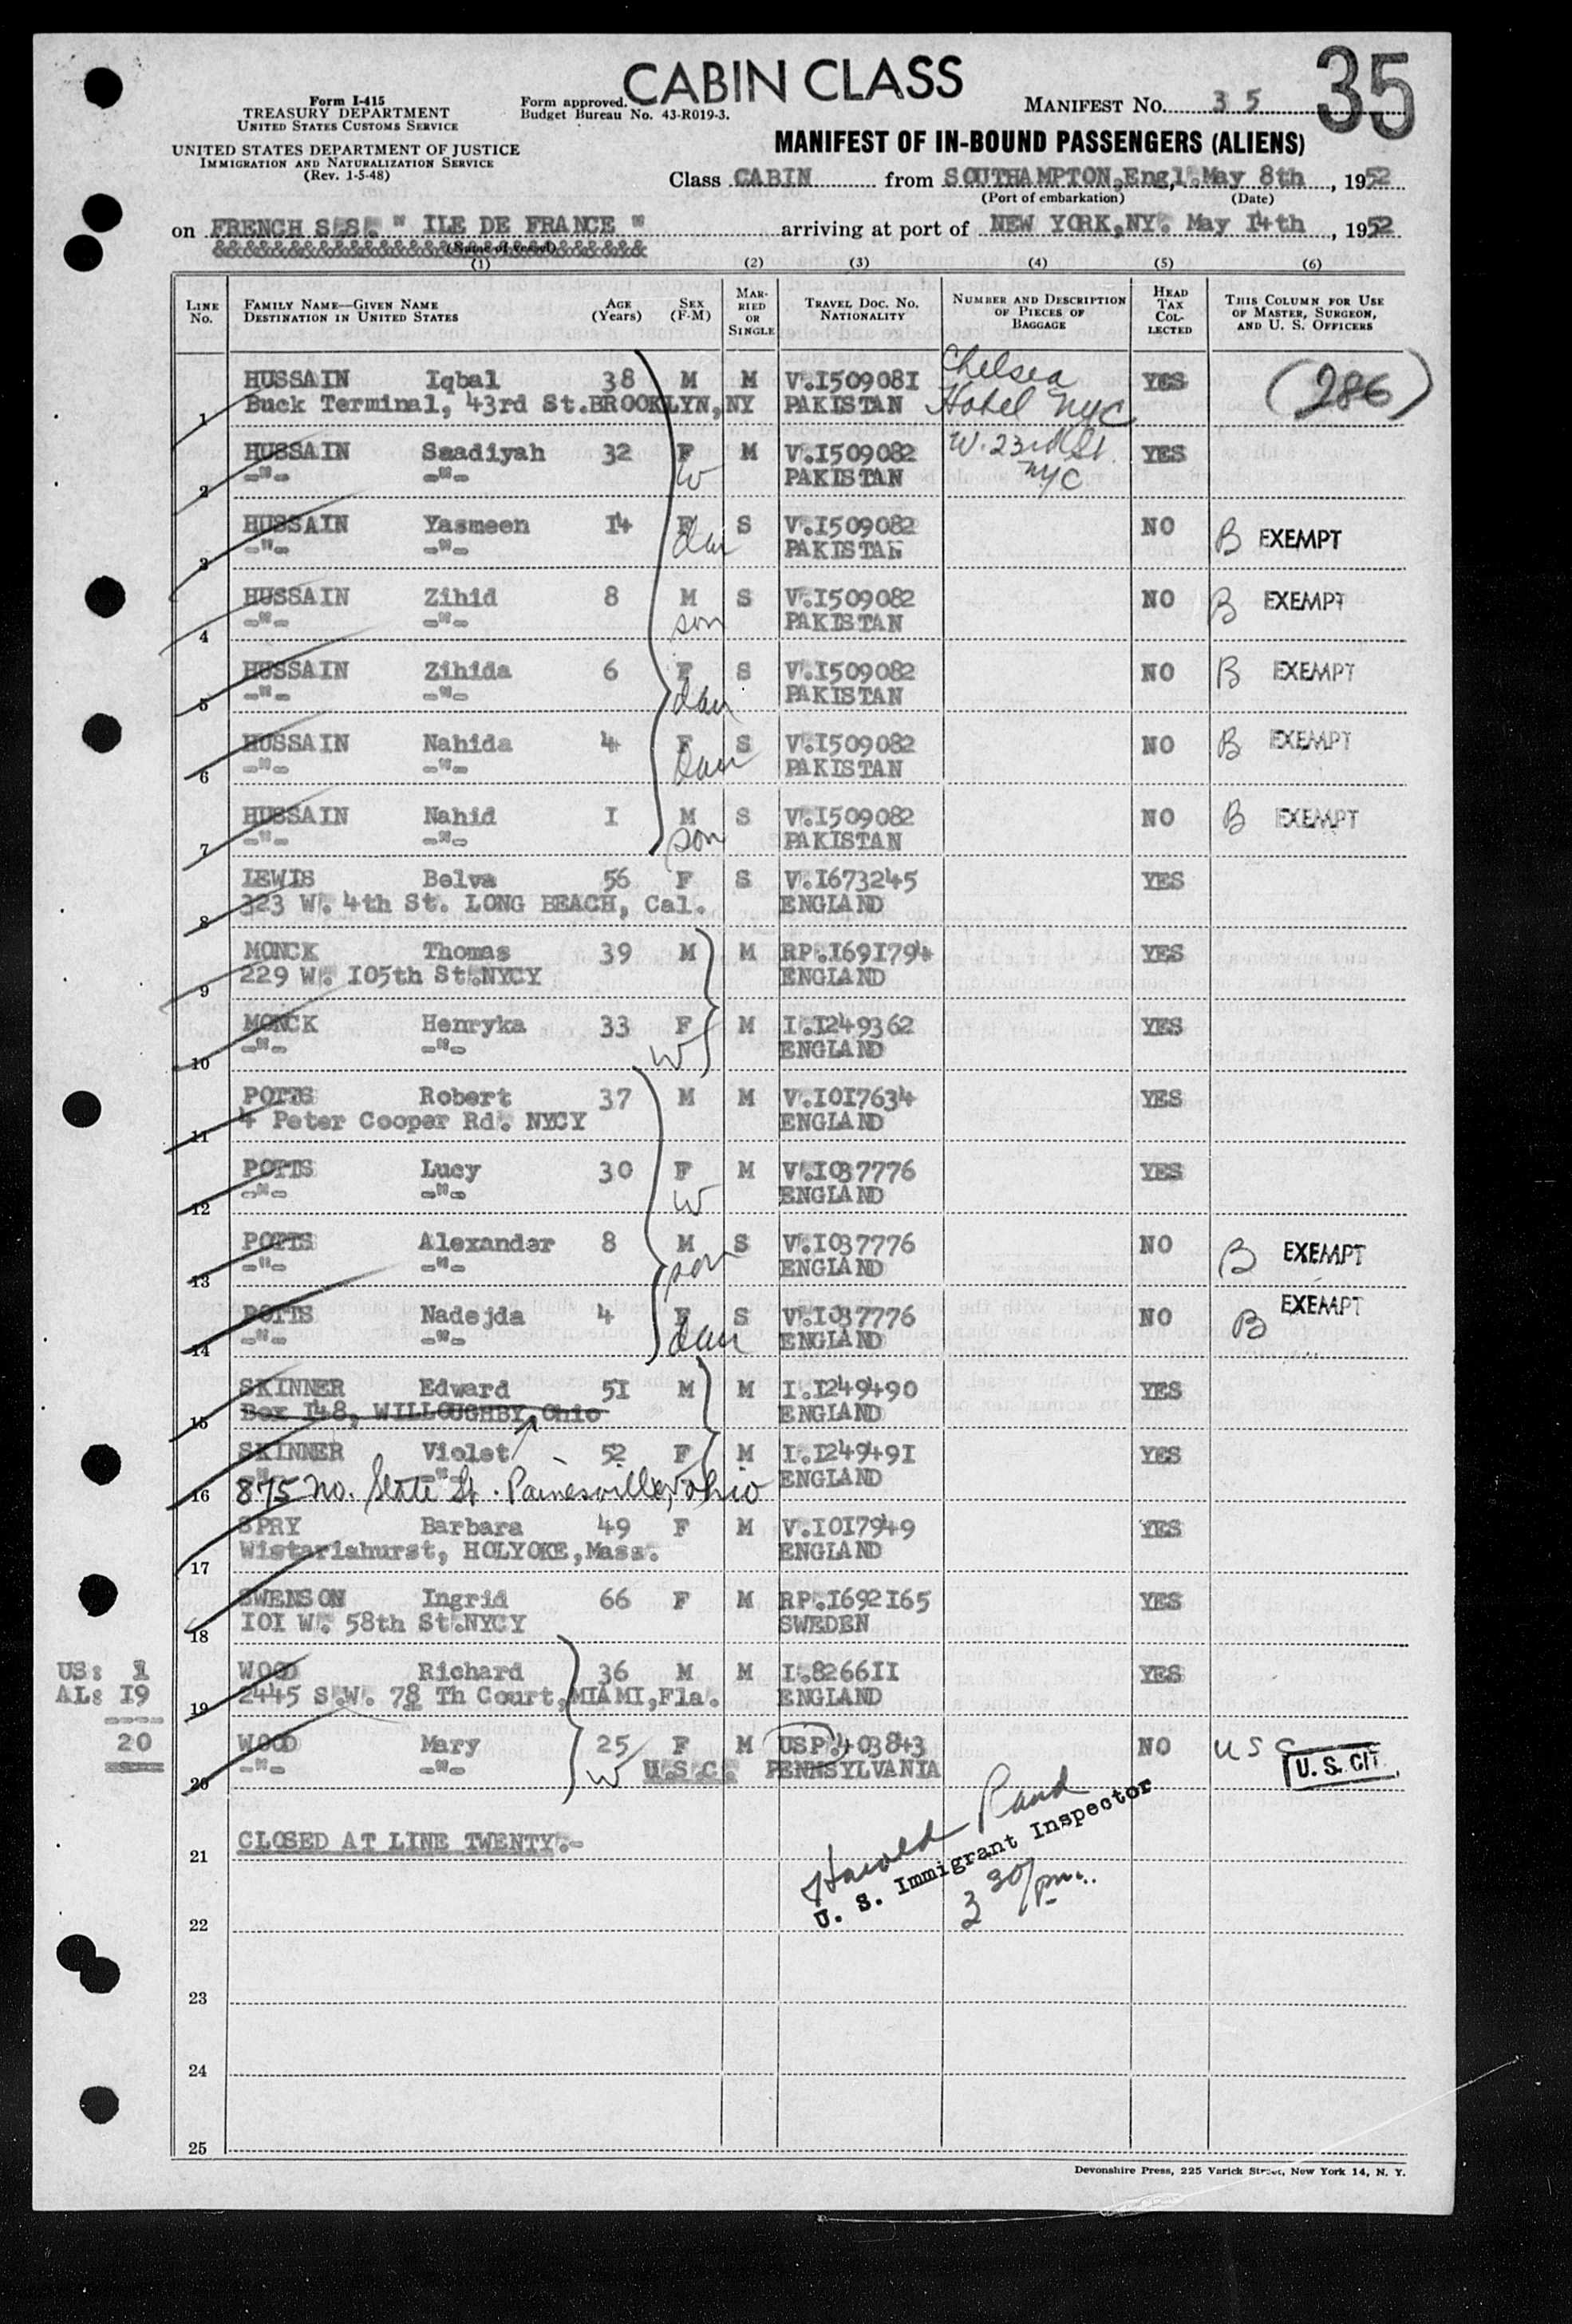 CABIN CLASS
35
Form I-415
TREASURY DEPARTMENT
UNITED STATES CUSTOMS SERVICE
UNITED STATES DEPARTMENT OF JUSTICE
IMMIGRATION AND NATURALIZATION SERVICE
(Rev. 1-5-48)
Form approved.
Budget Bureau No. 43-R019-3.
MANIFEST NO. 35
MANIFEST OF IN-BOUND PASSENGERS (ALIENS)
Class CABIN from SOUTHAMPTON,Engl. May 8th, 1952
(Port of embarkation) (Date)
on FRENCH S.S. " ILE DE FRANCE " arriving at port of NEW YORK,NY. May 14th, 1952
(Name of vessel)
(1) (2) (3) (4) (5) (6)
LINE No. FAMILY NAME—GIVEN NAME DESTINATION IN UNITED STATES AGE (Years) SEX (F-M) MARRIED OR SINGLE TRAVEL DOC. NO. NATIONALITY NUMBER AND DESCRIPTION OF PIECES OF BAGGAGE HEAD TAX COLLECTED THIS COLUMN FOR USE OF MASTER, SURGEON, AND U. S. OFFICERS
HUSSAIN Iqbal 38 M M V.I509081 Chelsea YES (286)
1 Buck Terminal, 43rd St.BROOKLYN,NY PAKISTAN Hotel NYC
HUSSAIN Saadiyah 32 F M V.I509082 W. 23rd St. YES
2 -"- -"- W PAKISTAN NYC
HUSSAIN Yasmeen I4 F S V.I509082 NO B EXEMPT
3 -"- -"- dau PAKISTAN
HUSSAIN Zihid 8 M S V.I509082 NO B EXEMPT
4 -"- -"- son PAKISTAN
HUSSAIN Zihida 6 F S V.I509082 NO B EXEMPT
5 -"- -"- dau PAKISTAN
HUSSAIN Nahida 4 F S V.I509082 NO B EXEMPT
6 -"- -"- dau PAKISTAN
HUSSAIN Nahid I M S V.I509082 NO B EXEMPT
7 -"- -"- son PAKISTAN
LEWIS Belva 56 F S V.I673245 YES
8 323 W. 4th St. LONG BEACH, Cal. ENGLAND
MONCK Thomas 39 M M RP.I69I794 YES
9 229 W. I05th St.NYCY ENGLAND
MONCK Henryka 33 F M I.I249362 YES
10 -"- -"- W ENGLAND
POTTS Robert 37 M M V.I0I7634 YES
11 4 Peter Cooper Rd. NYCY ENGLAND
POTTS Lucy 30 F M V.I037776 YES
12 -"- -"- W ENGLAND
POTTS Alexander 8 M S V.I037776 NO B EXEMPT
13 -"- -"- son ENGLAND
POTTS Nadejda 4 F S V.I037776 NO B EXEMPT
14 -"- -"- dau ENGLAND
SKINNER Edward 5I M M I.I249490 YES
15 Box I48, WILLOUGHBY,Ohio ENGLAND
SKINNER Violet 52 F M I.I24949I YES
-"- -"- W ENGLAND
16 875 No. State St. Painesville, Ohio
SPRY Barbara 49 F M V.I0I7949 YES
17 Wistariahurst, HOLYOKE,Mass. ENGLAND
SWENSON Ingrid 66 F M RP.I692I65 YES
18 I0I W. 58th St.NYCY SWEDEN
US: 1 WOOD Richard 36 M M I.8266II YES
AL: I9 19 2445 S.W. 78 Th Court,MIAMI,Fla. ENGLAND
20 WOOD Mary 25 F M USP.403843 NO USC
20 -"- -"- W U.S.C. PENNSYLVANIA U. S. CIT.
21 CLOSED AT LINE TWENTY.-
Harold Rand
U. S. Immigrant Inspector
3 30/pm.
22
23
24
25
Devonshire Press, 225 Varick Street, New York 14, N. Y.